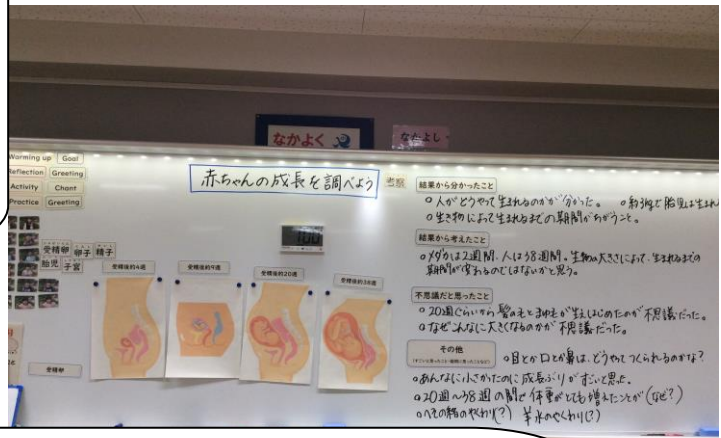 なかよく
なかよし
Warming up Goal
Reflection Greeting
Activity Chant
Practice Greeting
赤ちゃんの成長を調べよう
考察
100
受精卵 卵子 精子
胎児 子宮
受精後約4週
受精後約9週
受精後約20週
受精後約38週
受精卵
結果から分かったこと
○人がどうやって生まれるのかが分かった。
○生き物によって生まれるまでの期間がちがうこと。
結果から考えたこと
○メダカは2週間、人は38週間。生物の大きさによって、生まれるまでの
期間が変わるのではないかと思う。
不思議だと思ったこと
○20週ぐらいから髪の毛とまゆ毛が生えはじめたのが不思議だった。
○なぜこんなに大きくなるのかが不思議だった。
その他
○目とか口とか鼻は、どうやってつくられるのかな?
○あんなに小さかったのに成長ぶりがすごいと思った。
○20週〜38週の間で体重がとても増えたことが(なぜ?)
○へその緒のやくわり(?) 羊水のやくわり(?)